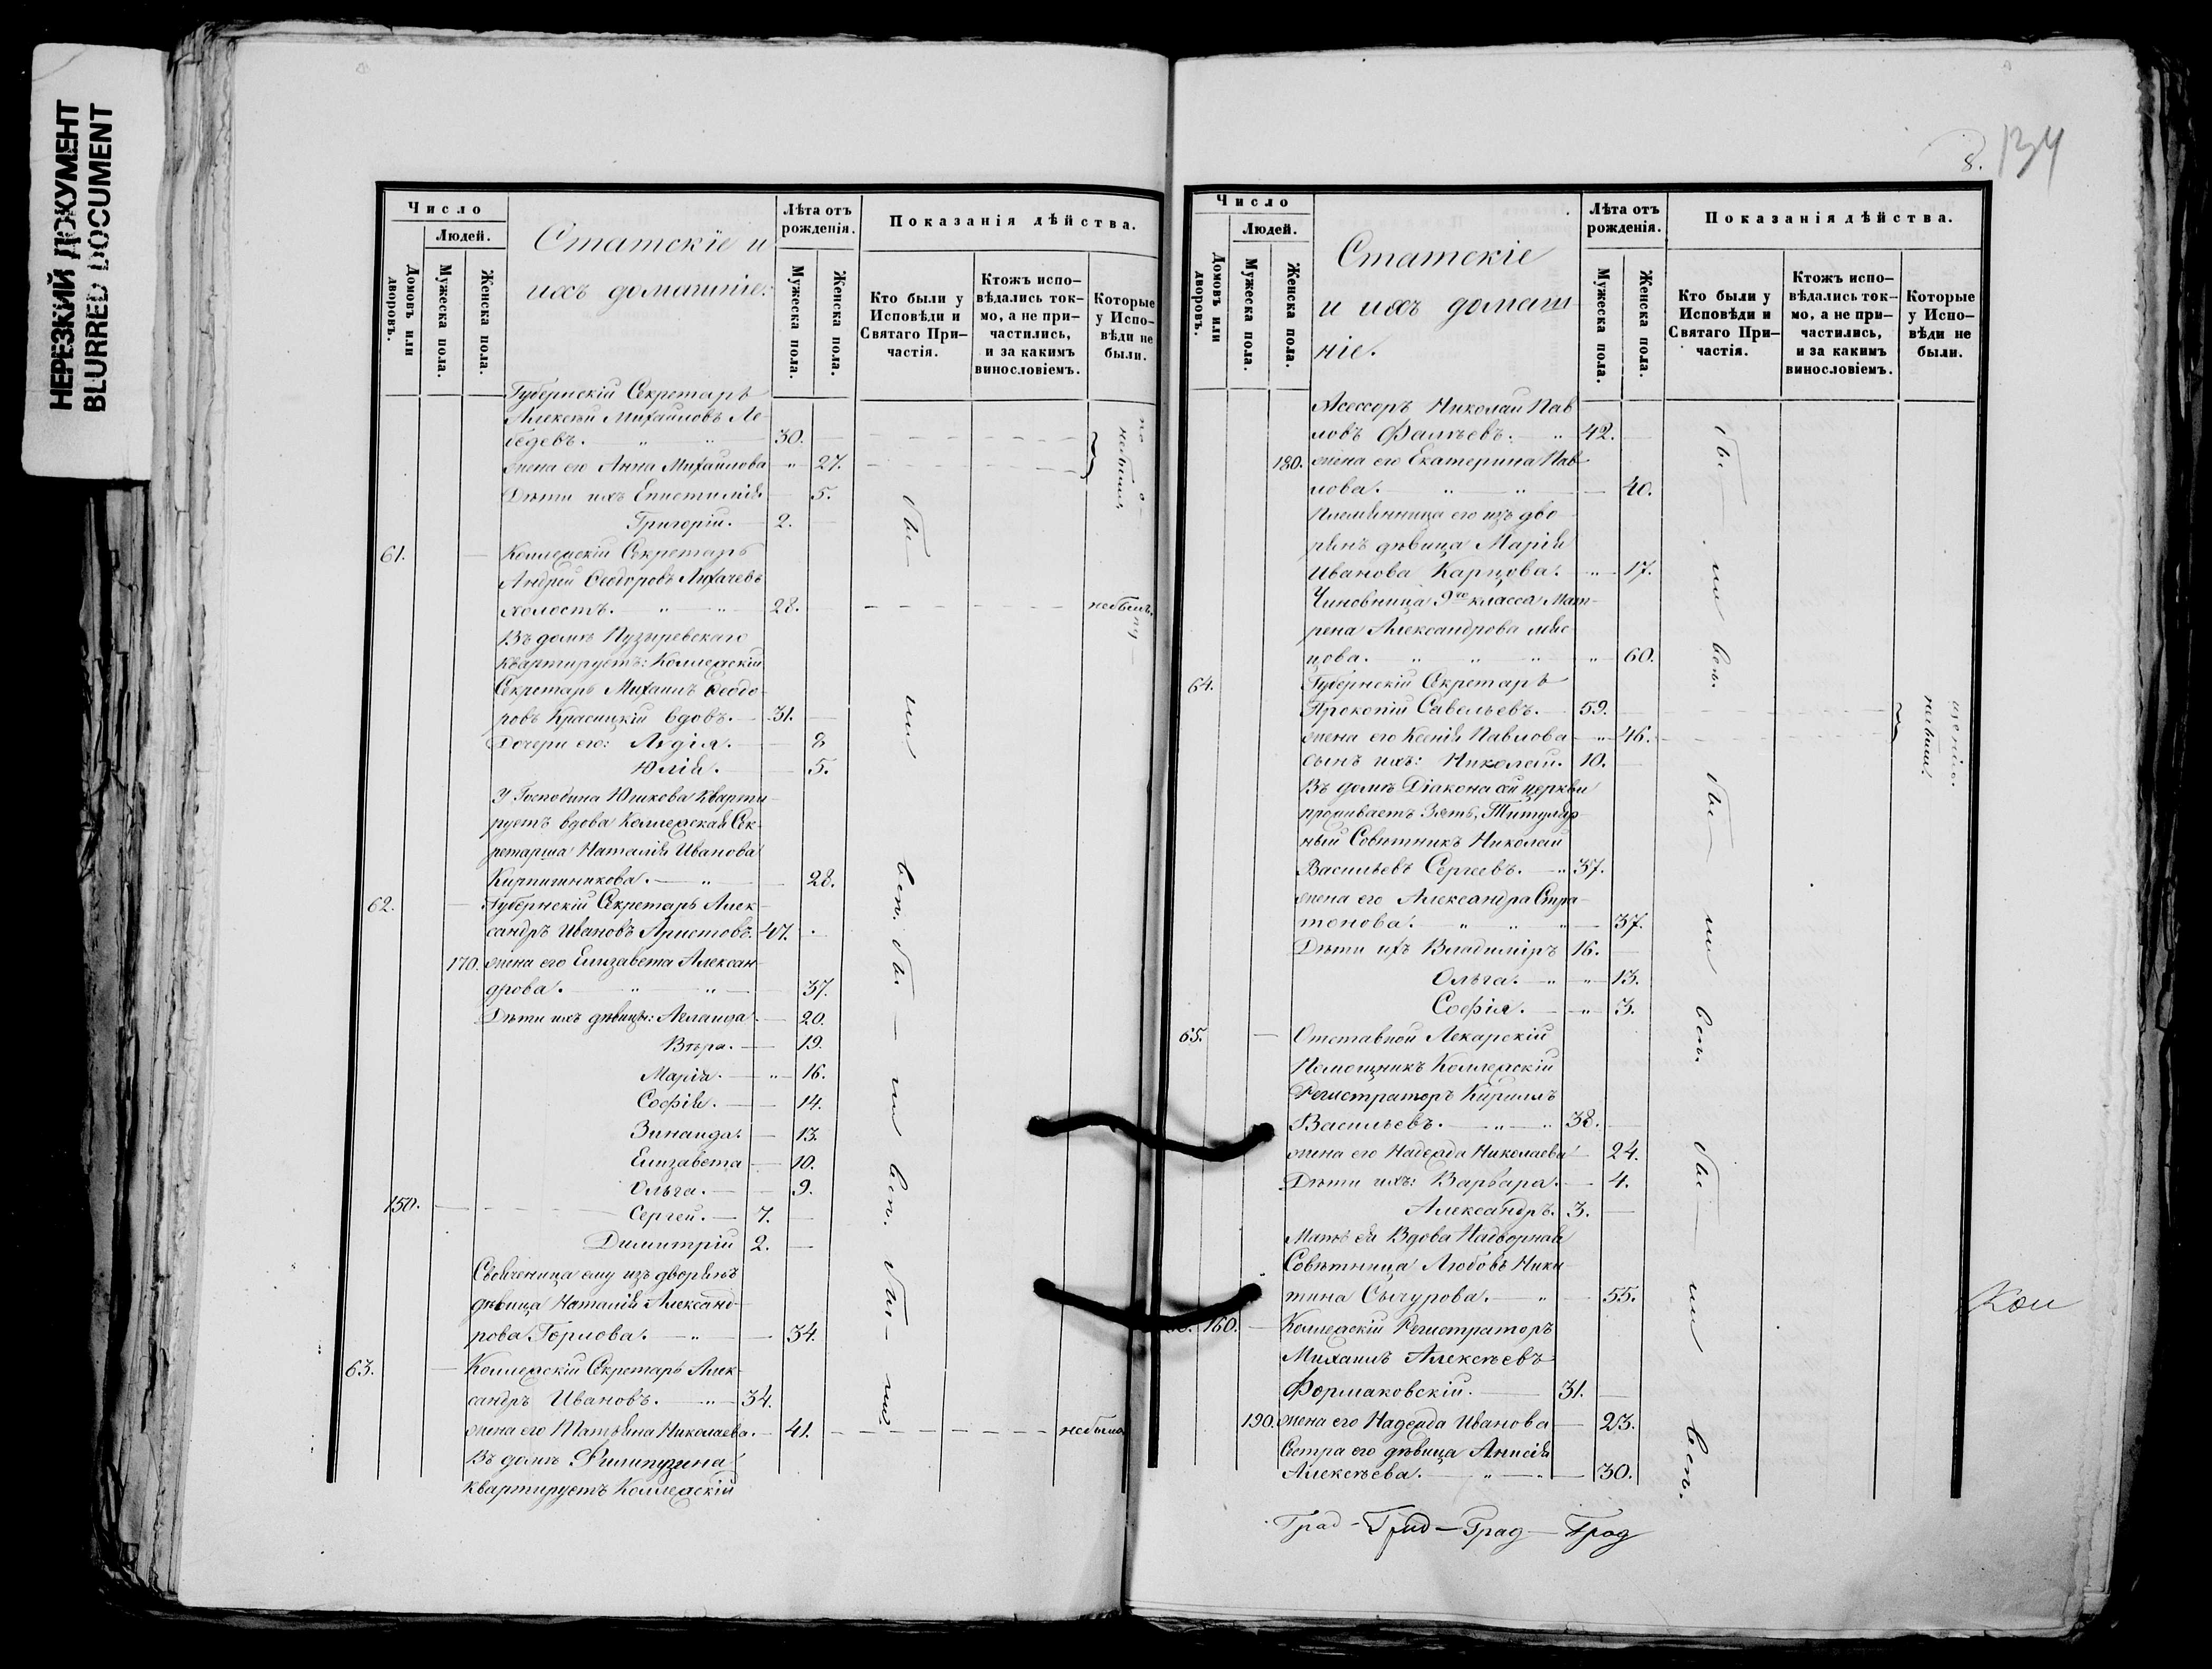 НЕРЕЗКИЙ ДОКУМЕНТ
BLURRED DOCUMENT
Число
Людей.
Домовъ или дворовъ.
Мужеска пола.
Женска пола.
Статскіе и
ихъ домашніе:
Лѣта отъ рожденія.
Мужеска пола.
Женска пола.
Показанія дѣйства.
Кто были у Исповѣди и Святаго При-частія.
Ктожъ испо-вѣдались ток-мо, а не при-частились, и за какимъ винословіемъ.
Которые у Испо-вѣди не были.
Губернскій Секретарь
Алексѣй Михайловъ Ле-
бедевъ. 30.
жена его Анна Михайлова 27.
небыли
Дѣти ихъ Епистимія 5.
Григорій. 2.
61. Коллежскій Секретарь
Андрей Ѳеодоровъ Лихачевъ
холостъ. 28. небылъ.
Въ домѣ Пузыревскаго
квартируетъ: Коллежскій
Секретарь Михаилъ Ѳеодо-
ровъ Красицкій вдовъ. 31.
Дочери его: Лидія. 8
Юлія. 5.
У Господина Юшкова кварти-
руетъ вдова Коллежская Сек-
ретарша Наталія Иванова
Кирпишникова. 28.
62. Губернскій Секретарь Алек-
сандръ Ивановъ Аристовъ. 47.
170. жена его Елизавета Алексан-
дрова. 37.
Дѣти ихъ дѣвицы: Аглаида 20.
Вѣра. 19.
Марія. 16.
Софія. 14.
Зинаида. 13.
Елизавета 10.
Ольга. 9.
150. Сергей. 7.
Димитрій 2.
Свояченица ему изъ дворянъ
дѣвица Наталія Александ-
рова Горлова. 34.
63. Коллежскій Секретарь Алек-
сандръ Ивановъ. 34.
жена его Татьяна Николаева. 41. небыла
Въ домѣ Филипузина
квартируетъ Коллежскій
бы — ли вси. бы — ли вси. бы — ли
8. 134
Число
Людей.
Домовъ или дворовъ.
Мужеска пола.
Женска пола.
Статскіе
и ихъ домаш
ніе.
Лѣта отъ рожденія.
Мужеска пола.
Женска пола.
Показанія дѣйства.
Кто были у Исповѣди и Святаго При-частія.
Ктожъ испо-вѣдались ток-мо, а не при-частились, и за какимъ винословіемъ.
Которые у Испо-вѣди не были.
Асессоръ Николай Пав
ловъ Фалѣевъ. 42.
180. жена его Екатерина Пав
лова. 40.
Племянница его изъ дво
рянъ дѣвица Марія
Иванова Карцова. 17.
Чиновница 9го класса Мат-
рена Александрова
цова. 60.
64. Губернскій Секретарь
Прокопій Савельевъ. 59.
жена его Ксенія Павлова 46.
небыли.
сынъ ихъ: Николай. 10.
Въ домѣ Діакона сей церкви
проживаетъ Зять, Титуляр-
ный Совѣтникъ Николай
Васильевъ Сергеевъ. 37.
жена его Александра Стра-
тонова. 37.
Дѣти ихъ Владиміръ 16.
Ольга. 13.
Софія. 3.
65. Отставной Лекарскій
Помощникъ Коллежскій
Регистраторъ Кириллъ
Васильевъ. 38.
жена его Надежда Николаева 24.
Дѣти ихъ: Варвара. 4.
Александръ. 3.
Мать ея Вдова Надворная
Совѣтница Любовь Ники
тина Сычурова. 55.
160. Коллежскій Регистраторъ
Михаилъ Алексѣевъ
Формаковскій. 31.
190. жена его Надежда Иванова 23.
Сестра его дѣвица Анисія
Алексѣева. 30.
бы — ли вси. бы — ли вси. бы — ли вси.
Град - Град - Град - Град